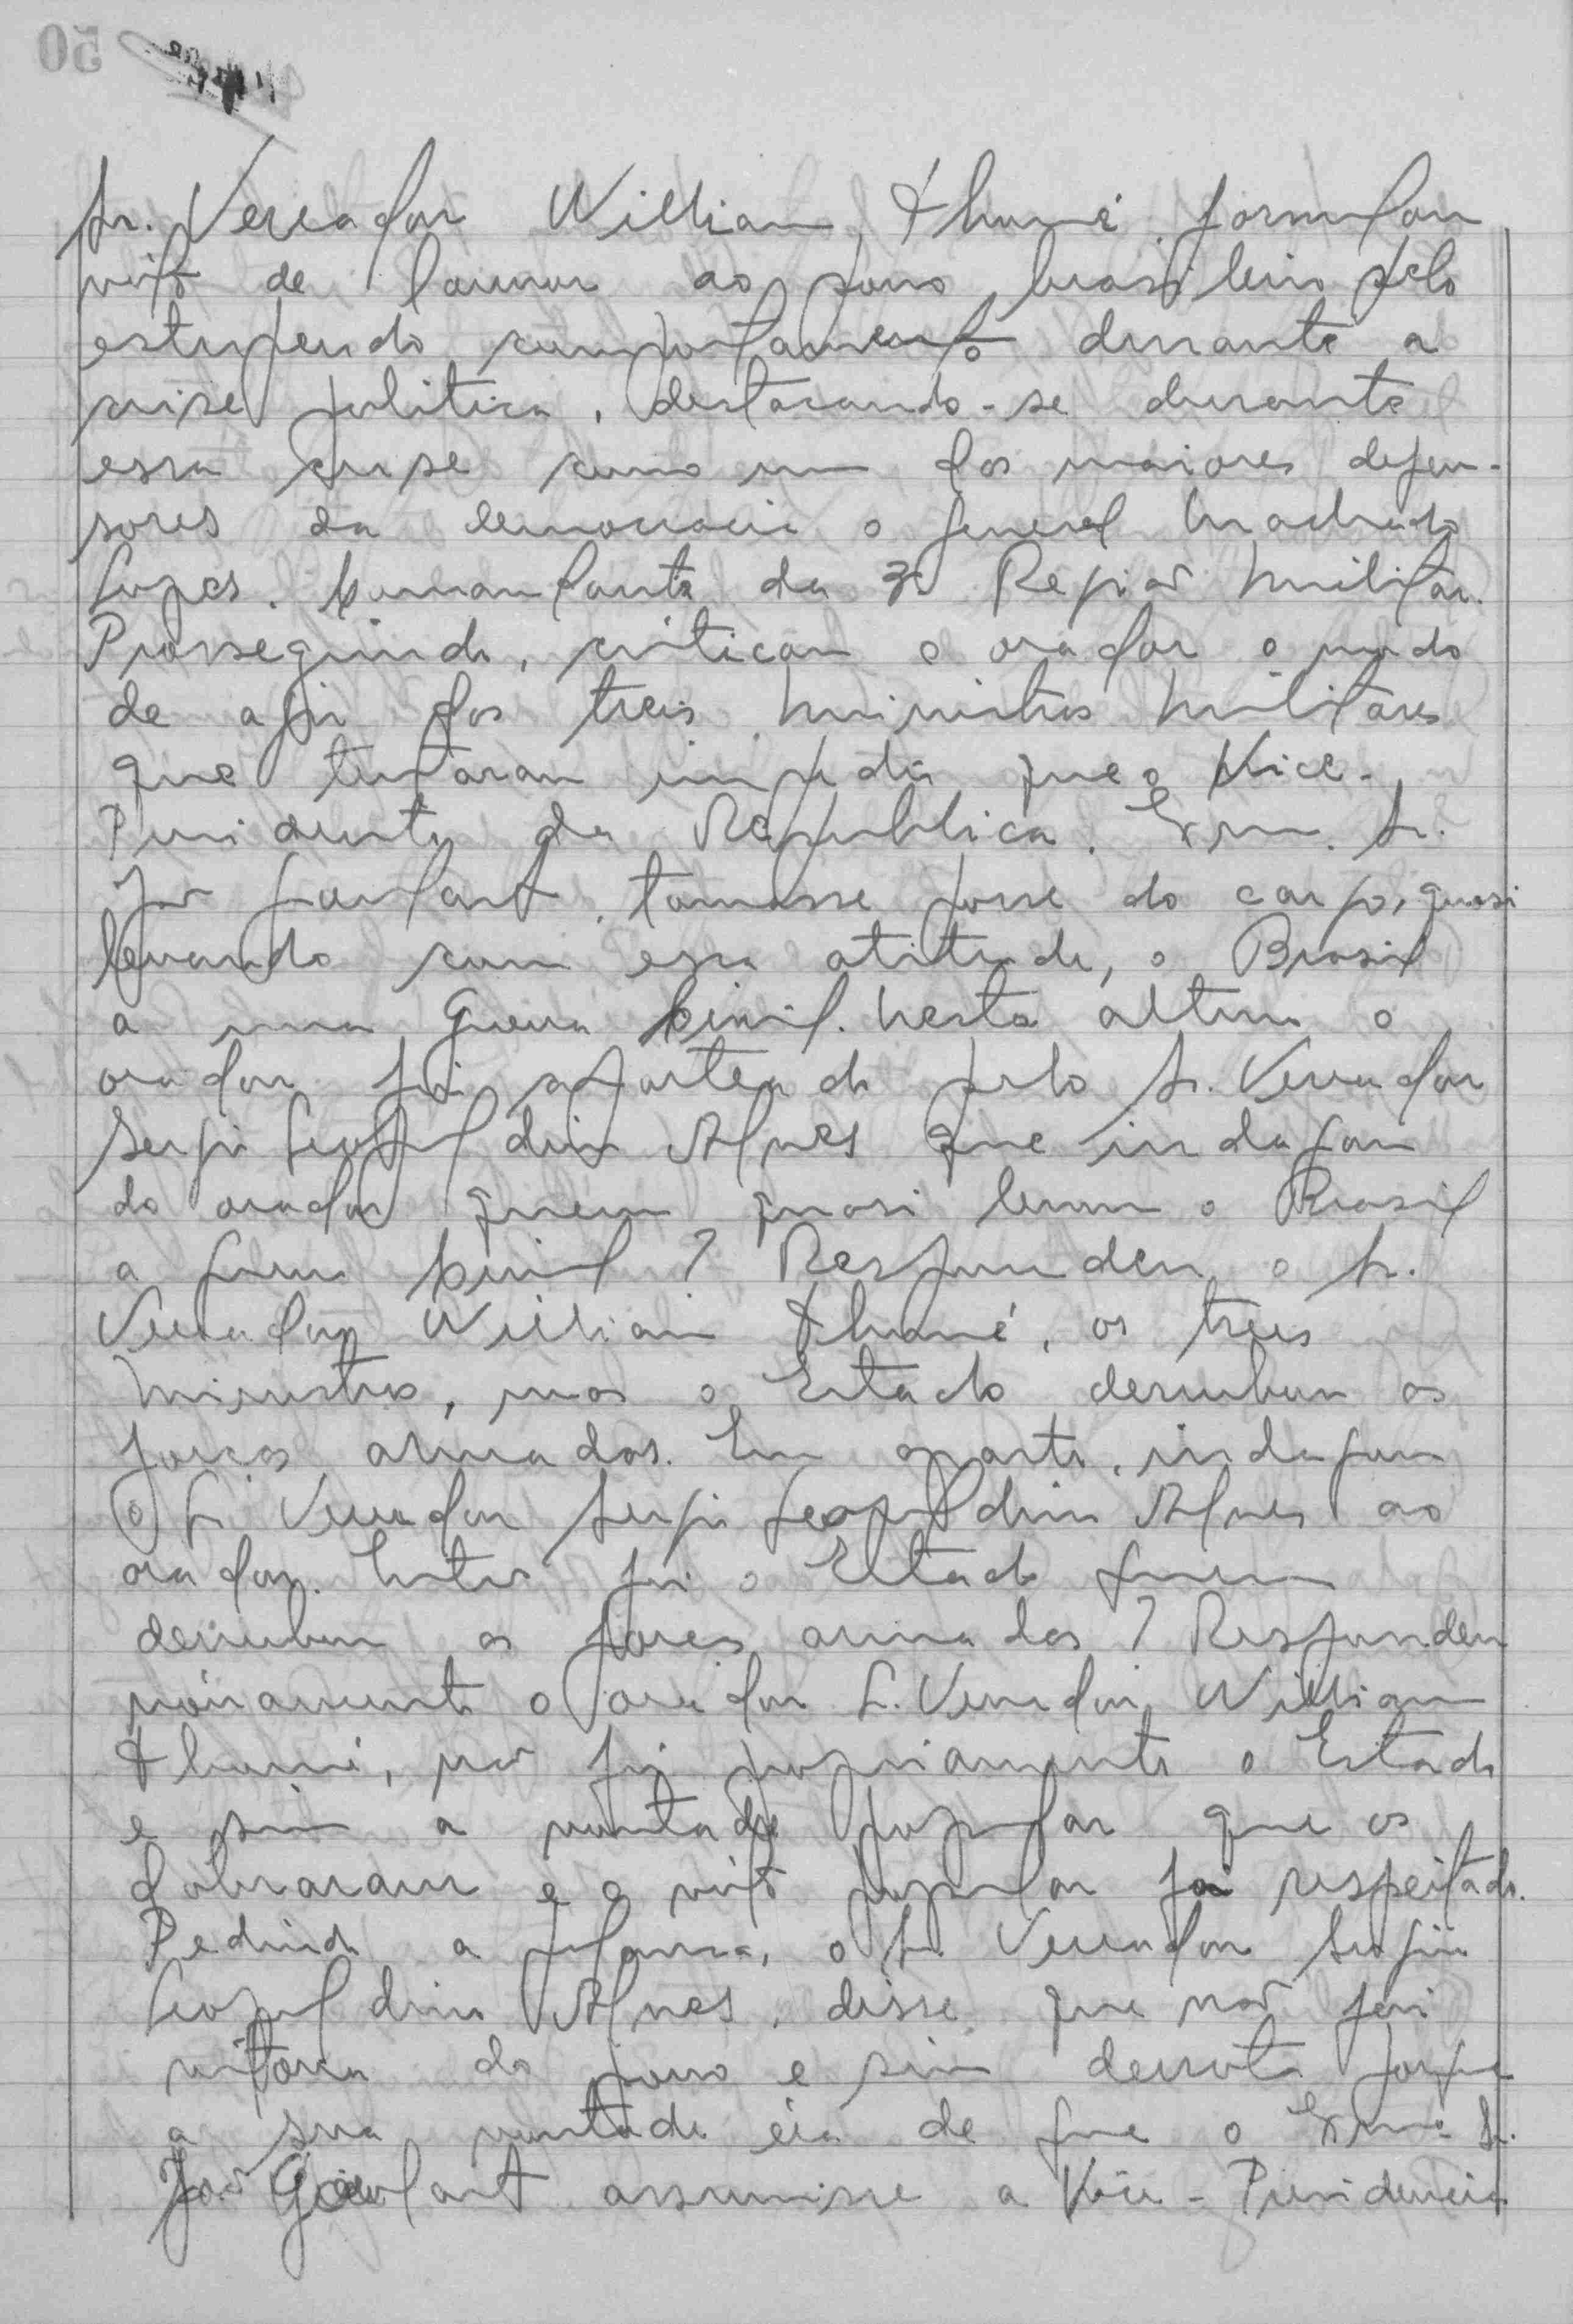 Sr. Vereador William Thomé formulou
voto de louvor ao povo brasileiro pelo
estupendo comportamento durante a
crise politica, destacando-se durante
essa crise como um dos maiores defen-
sores da democracia o general Machado
Lopes, Comandante da 3ª Região Militar.
Prosseguindo, criticou o orador o modo
de agir dos treis Ministros Militares
que tentaram impedir que o Vice-
Presidente da Republica, Exmo. Sr.
João Goulart, tomasse posse do cargo, quasi
levando com essa atitude, o Brasil
a uma Guerra Civil. Nesta altura o
orador foi aparteado pelo Sr. Vereador
Sergio Leopoldino Alves que indagou
do orador quem quasi levou o Brasil
a guerra civil? Respondeu o Sr.
Vereador William Thomé, os treis
Ministros, mas o Estado derrubou as
forças armadas. Em aparte, indagou
o Sr. Vereador Sergio Leopoldino Alves ao
orador. Então foi o Estado quem
derrubou as forças armadas? Respondeu
novamente o orador Sr. Vereador William
Thomé, não foi propriamente o Estado
e sim a vontade popular que os
dobraram e o voto popular foi respeitado.
Pedindo a palavra, o Sr. Vereador Sergio
Leopoldino Alves, disse que não foi
vitoria do povo e sim derrota porque
a sua vontade éra de que o Exmo. Sr.
João Goulart assumisse a Vice-Presidencia